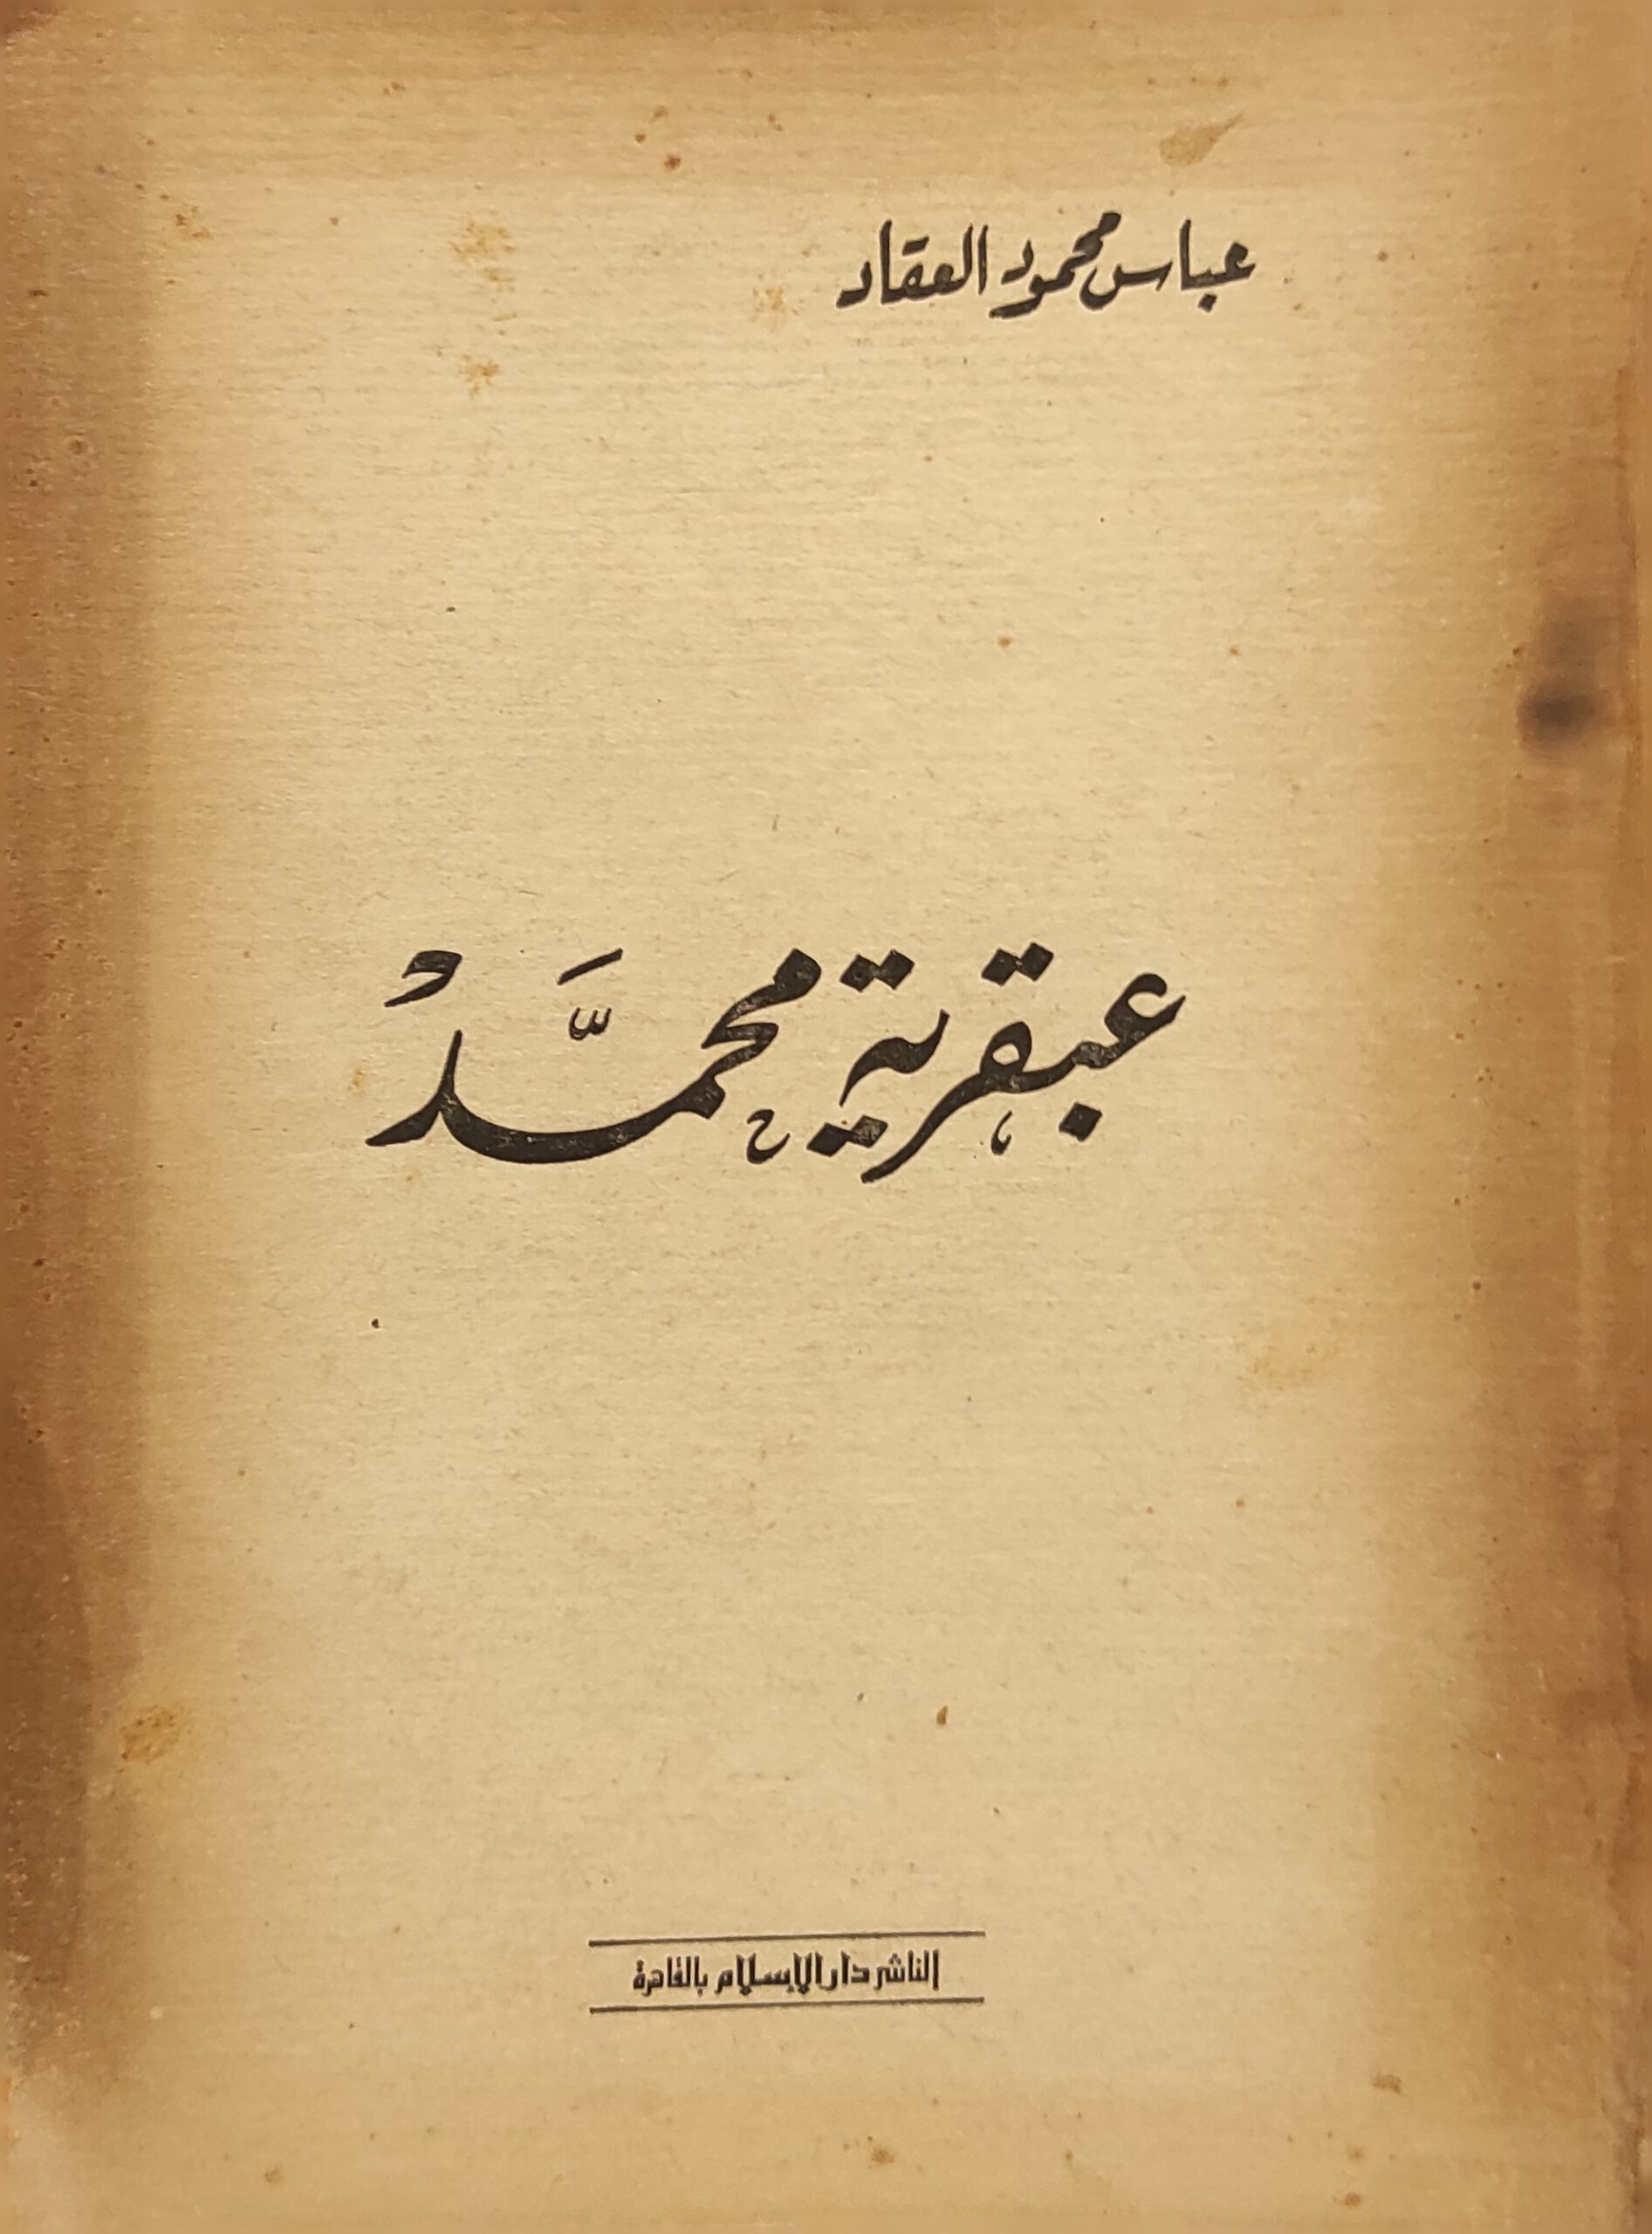 عباس محمود العقاد
عبقرية محمَّد
الناشر دار الإسلام بالقاهرة